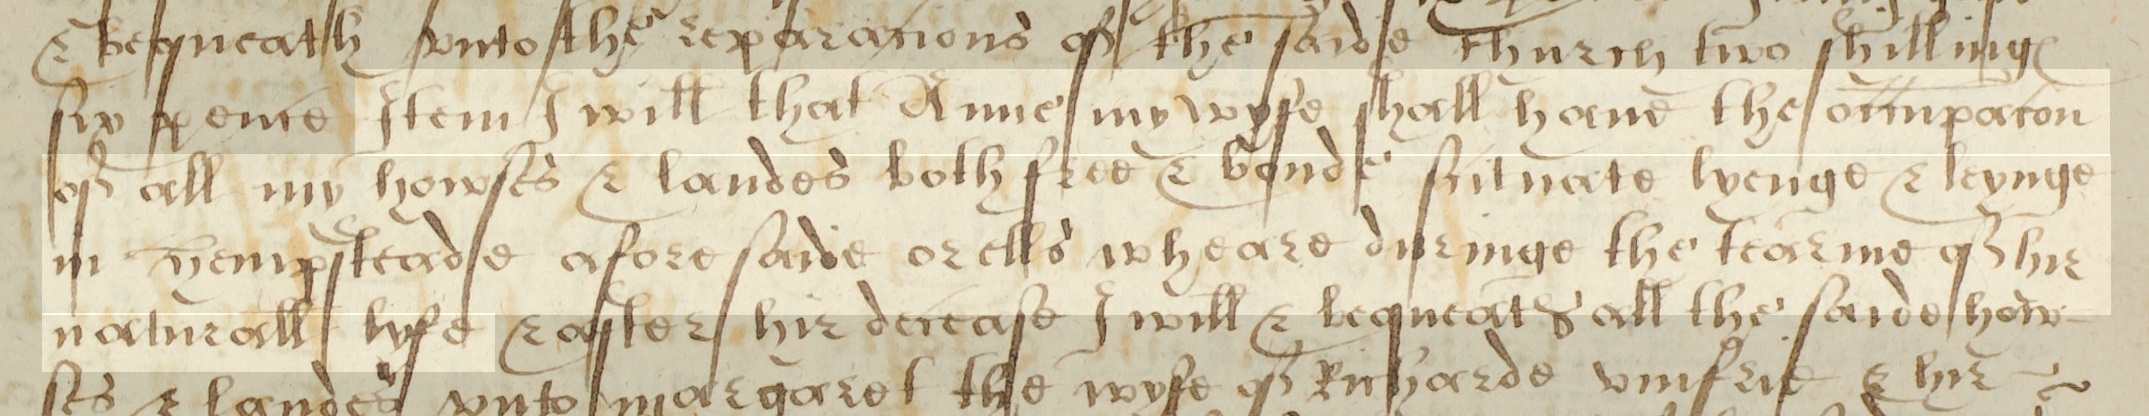 & bequeath vnto the reparacions of the saide church two shillings
six pence Item I will that Anne my wyfe shall haue the occupacon
of all my howses & landes both free & bonde scituate lyenge & beynge
in Hempsteade afore saide or ells wheare duringe the tearme of hir
naturall lyfe & after hir decease I will & bequeath all the saide how-
ses & landes vnto margaret the wyfe of Richarde vmfrie & hir